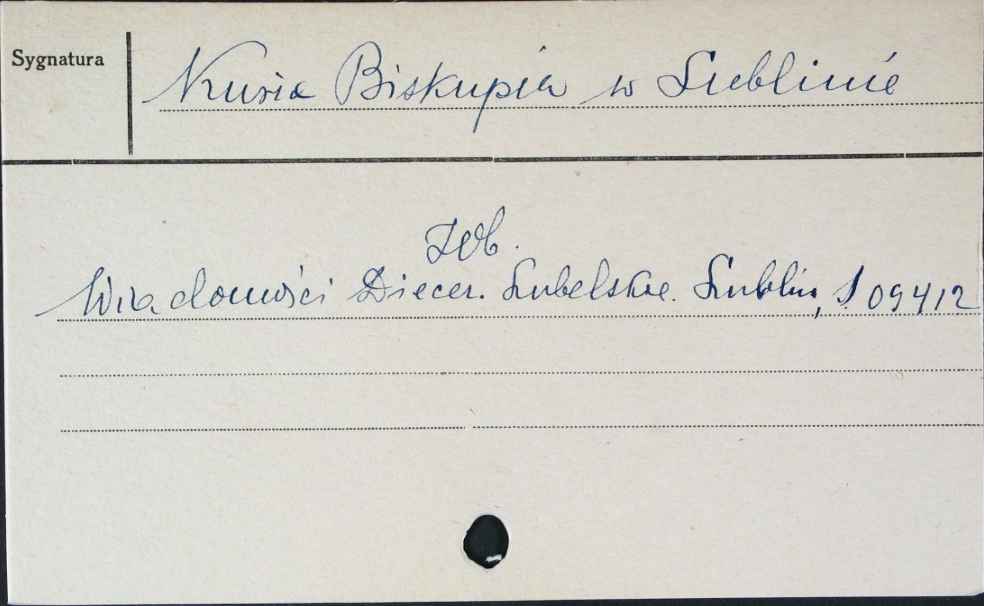 Sygnatura
Kuria Biskupia w Lublinie
Zob.
Wiadomości Diecez. Lubelskie. Lublin, S 09412